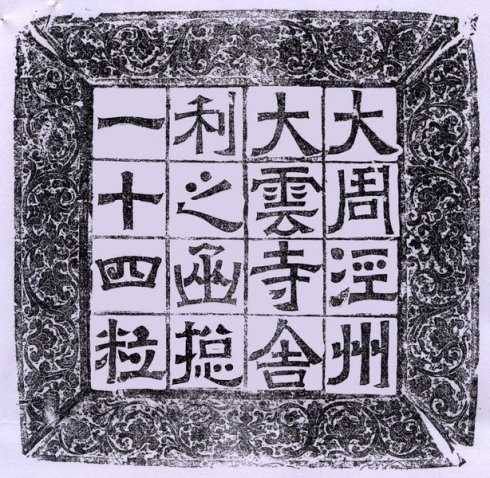 大周涇州
大雲寺舍
利之函揔
一十四粒